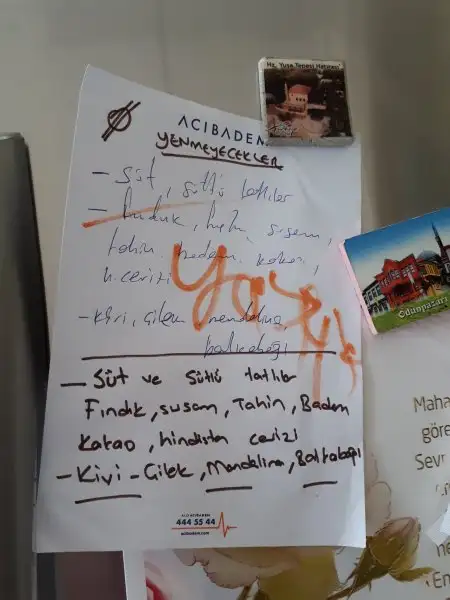 Hz. Yuşa Tepesi Hatırası
ACIBADEM
YENMEYECEKLER
- Süt, sütlü tatlılar
- fındık, susam,
tahin, badem, kakao,
h. cevizi
- Kivi, çilek, mandalina
balkabağı
Yasak
- Süt ve Sütlü tatlılar
Fındık, susam, Tahin, Badem
Kakao, hindistan cevizi
- Kivi - Çilek, Mandalina, Balkabağı
ALO ACIBADEM
444 55 44
acibadem.com
Odunpazarı
Maha
göre
Sevr